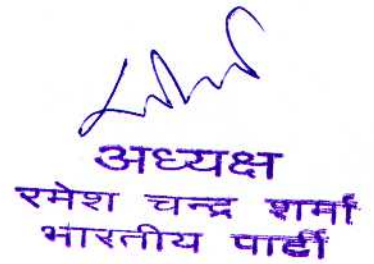 अध्यक्ष
रमेश चन्द्र शर्मा
भारतीय पार्टी